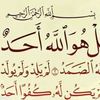 بسم الله الرحمن الرحيم
قل هو الله أحد
الله الصمد لم يلد ولم يولد
ولم يكن له كفوا أحد